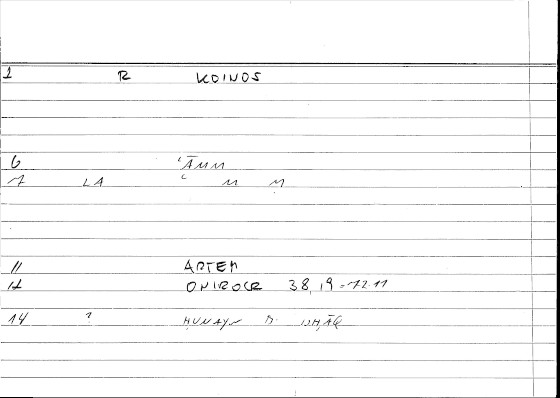 1 R KOINOS
6 ʿĀMM
7 LA ʿ M M
11 ARTEM
12 ONIROCR 38, 19 = 72 11
14 ? ḤUNAYN B. ISḤĀQ